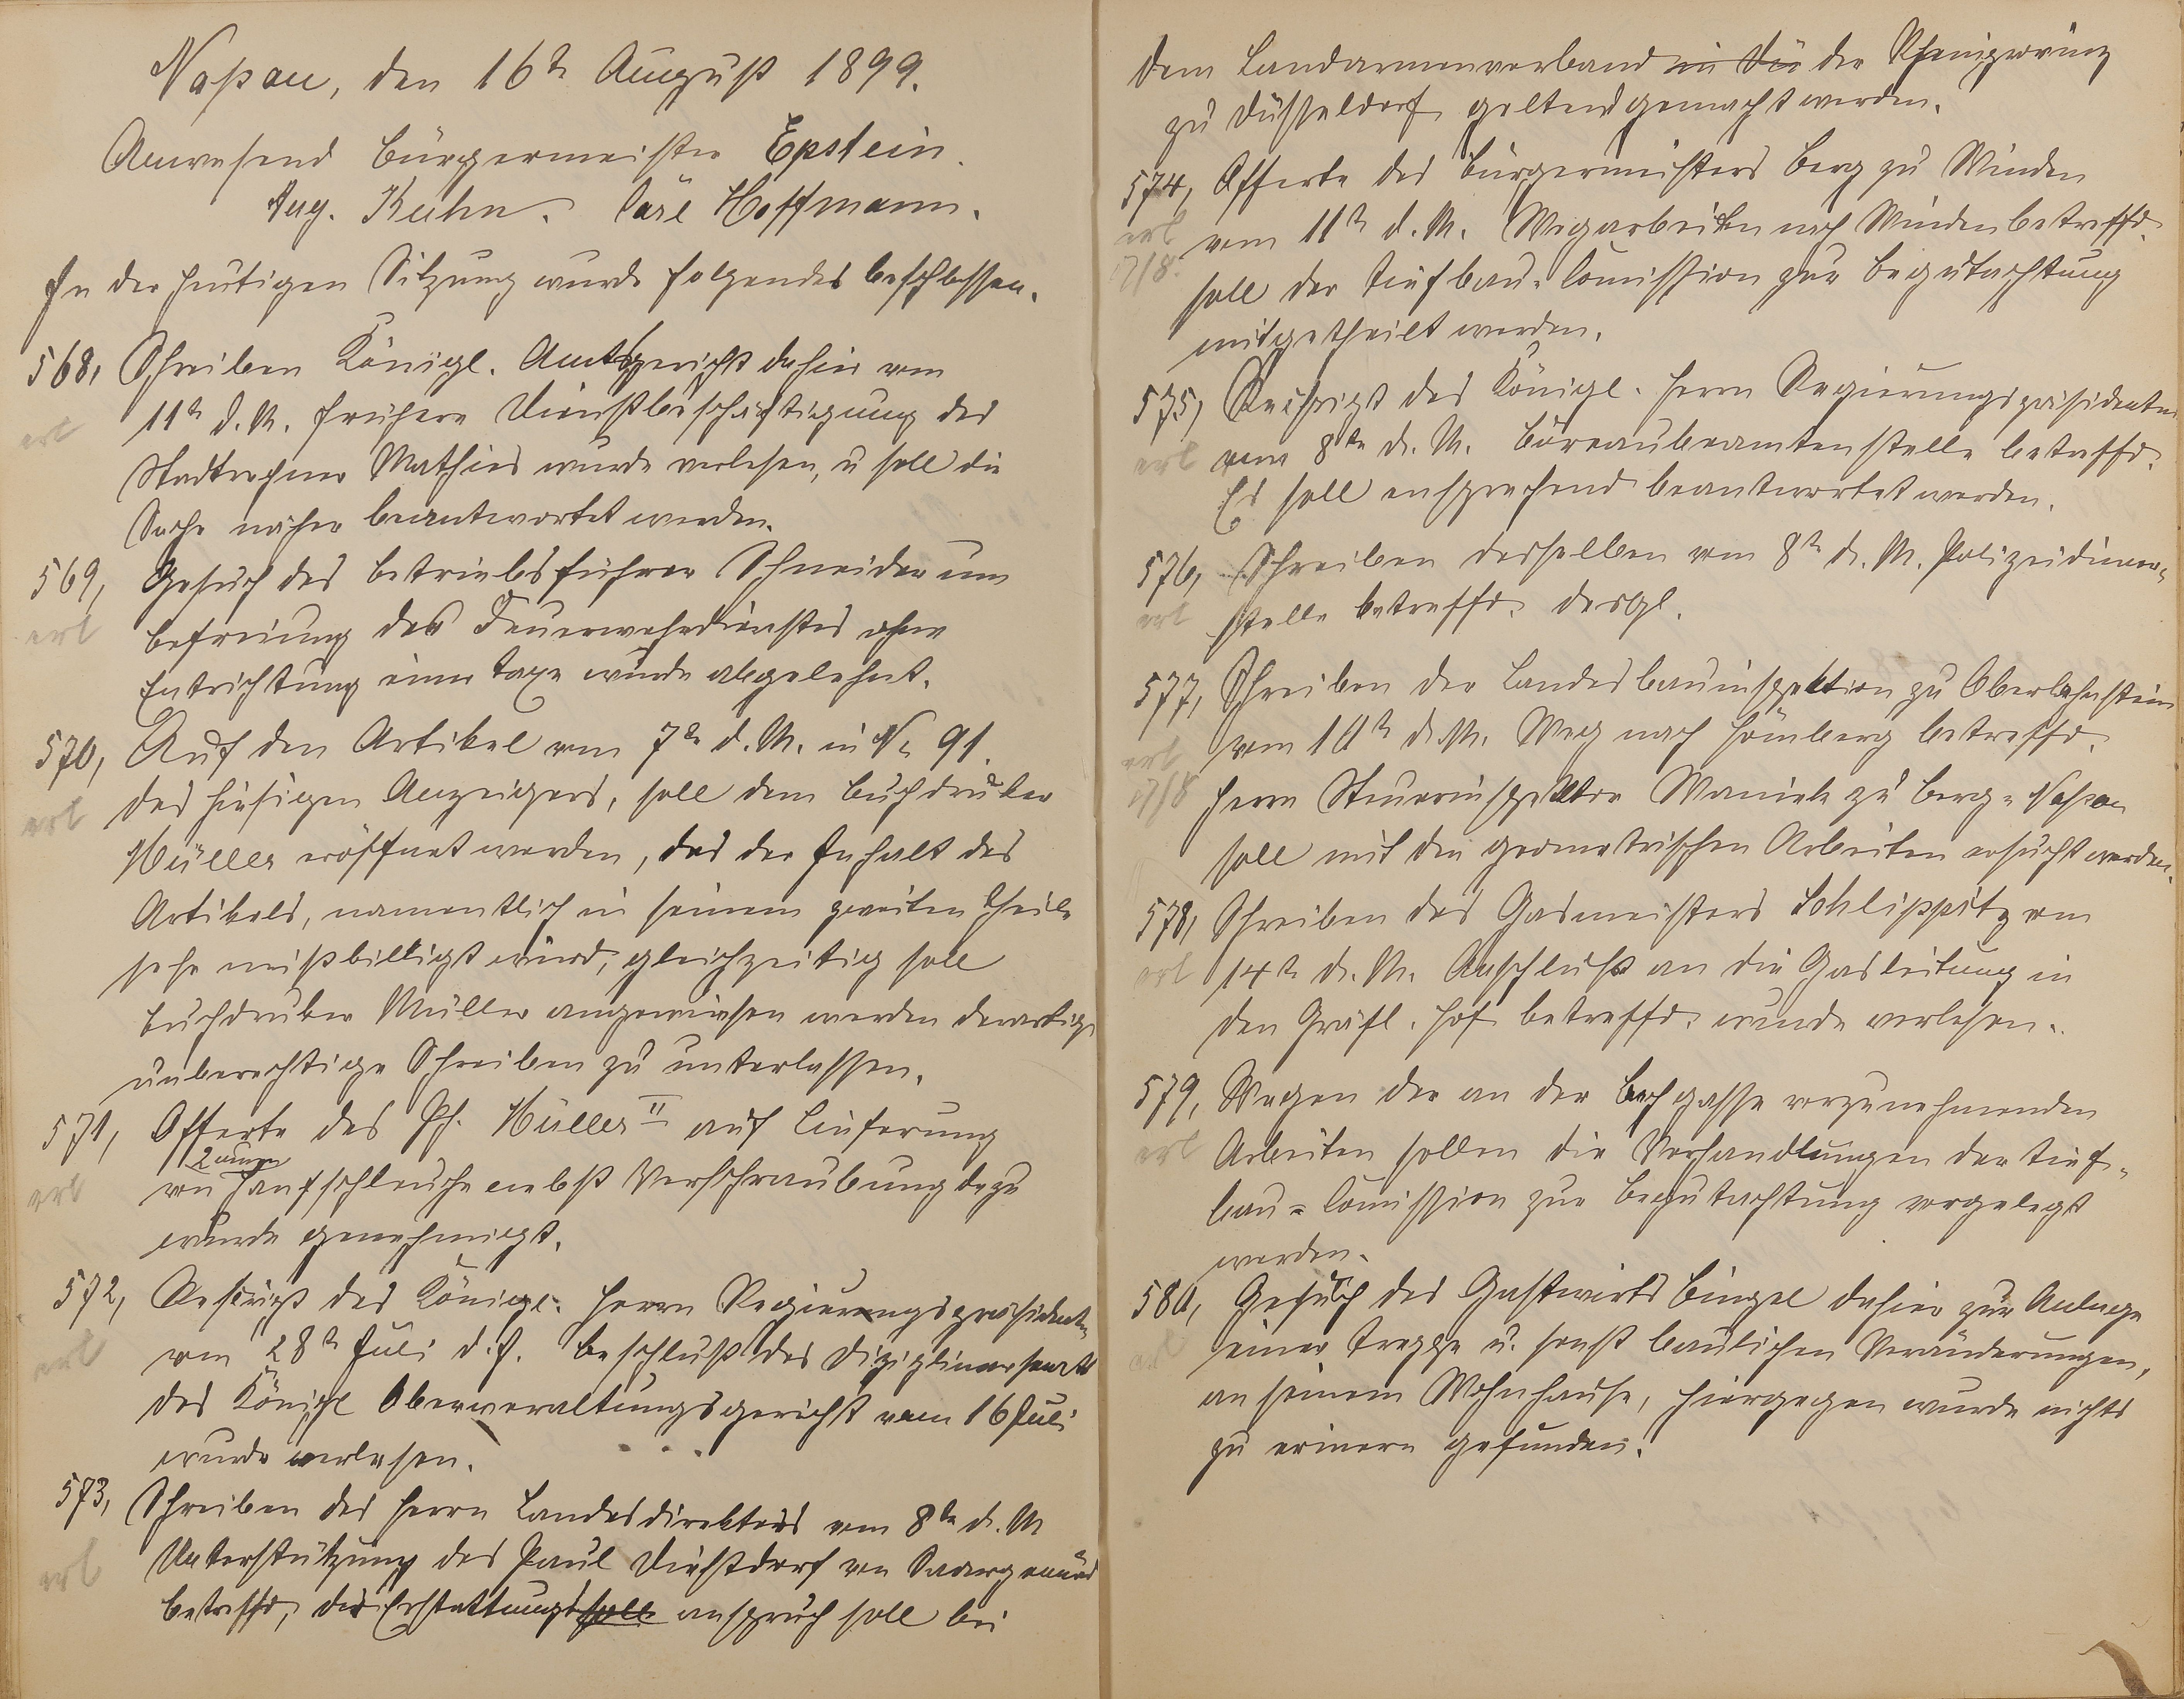 Naßau, den 16t August 1899.
Anwesend Bürgermeister Epstein.
Aug. Kuhn. Carl Hoffmann.
In der heutigen Sitzung wurde folgendes beschlossen.
568, Schreiben Königl. Amtsgericht dahier vom
erl 11t d. M. frühere Dienstbeschäftigung des
Stadtrechner Mathies wurde verlesen, u soll die
Sache näher beantwortet werden.
569, Gesuch des Betriebsführer Schneider um
erl Befreiung des Feuerwehrdienstes ohne
Entrichtung einer Taxe wurde abgelehnt.
570, Auf den Artikel vom 7t d. M. in No 91.
erl des hiesigen Anzeigers, soll dem Buchdruker
Müller eröffnet werden, das der Inhalt des
Artikels, namentlich in seinem zweiten Theile
sehr mißbilligt wird, gleichzeitig soll
Buchdruker Müller angewiesen werden derartige
unberechtige Schreiben zu unterlassen.
571, Offerte des Ph. Müller II auf Lieferung
2 neuen
erl von Hanfschleuche nebst Verschraubung dazu
wurde genehmigt.
572, Reskript des Königl. Herrn Regierungspräsidenten
erl vom 28t Juli d. J. Beschluß des Disziplinarsenats
des Königl Oberverwaltungsgericht vom 16 Juli
wurde verlesen.
573, Schreiben des Herrn Landesdirektors vom 8te d. M
erl Unterstützung des Paul Diestdorf von Saargemünd
betreffd, der Erstattungs soll anspruch soll bei
dem Landarmenverband in die der Rheinprovinz
zu Düsseldorf geltend gemacht werden.
574, Offerte des Bürgermeisters Berg zu Winden
erl vom 11t d. M. Wegarbeiten nach Winden betreffd.
17/8. soll der Tiefbau-Comission zur Begutachtung
mitgetheilt werden.
575, Reskript des Königl. Herrn Regierungspräsidenten
erl vom 8te d. M. Büreaubeamtenstelle betreffd.
Es soll ensprechend beantwortet werden.
576, Schreiben desselben vom 8t d. M. Polizeidiener-
erl stelle betreffd. desgl.
577, Schreiben der Landesbauinspektion zu Oberlahnstein
erl vom 10t d. M. Weg nach Hömberg betreffd.
17/8 Herrn Steuerinspektor zu Berg-Naßau
soll mit den geometrischen Arbeiten ersucht werden.
578, Schreiben des Gasmeisters Schlippitz vom
erl 14t d. M. Anschluß an die Gasleitung in
den Gräfl. Hof betreffd. wurde verlesen.
579, Wegen der an der Bachgasse vorzunehmenden
erl Arbeiten sollen die Verhandlungen der Tief-
bau-Comission zur Begutachtung vorgelegt
werden.
580, Gesuch des Gastwirts Bingel dahier zur Anlage
erl einer Treppe u. sonst baulichen Veränderungen,
an seinem Wohnhause, hiergegen wurde nichts
zu erinern gefunden.